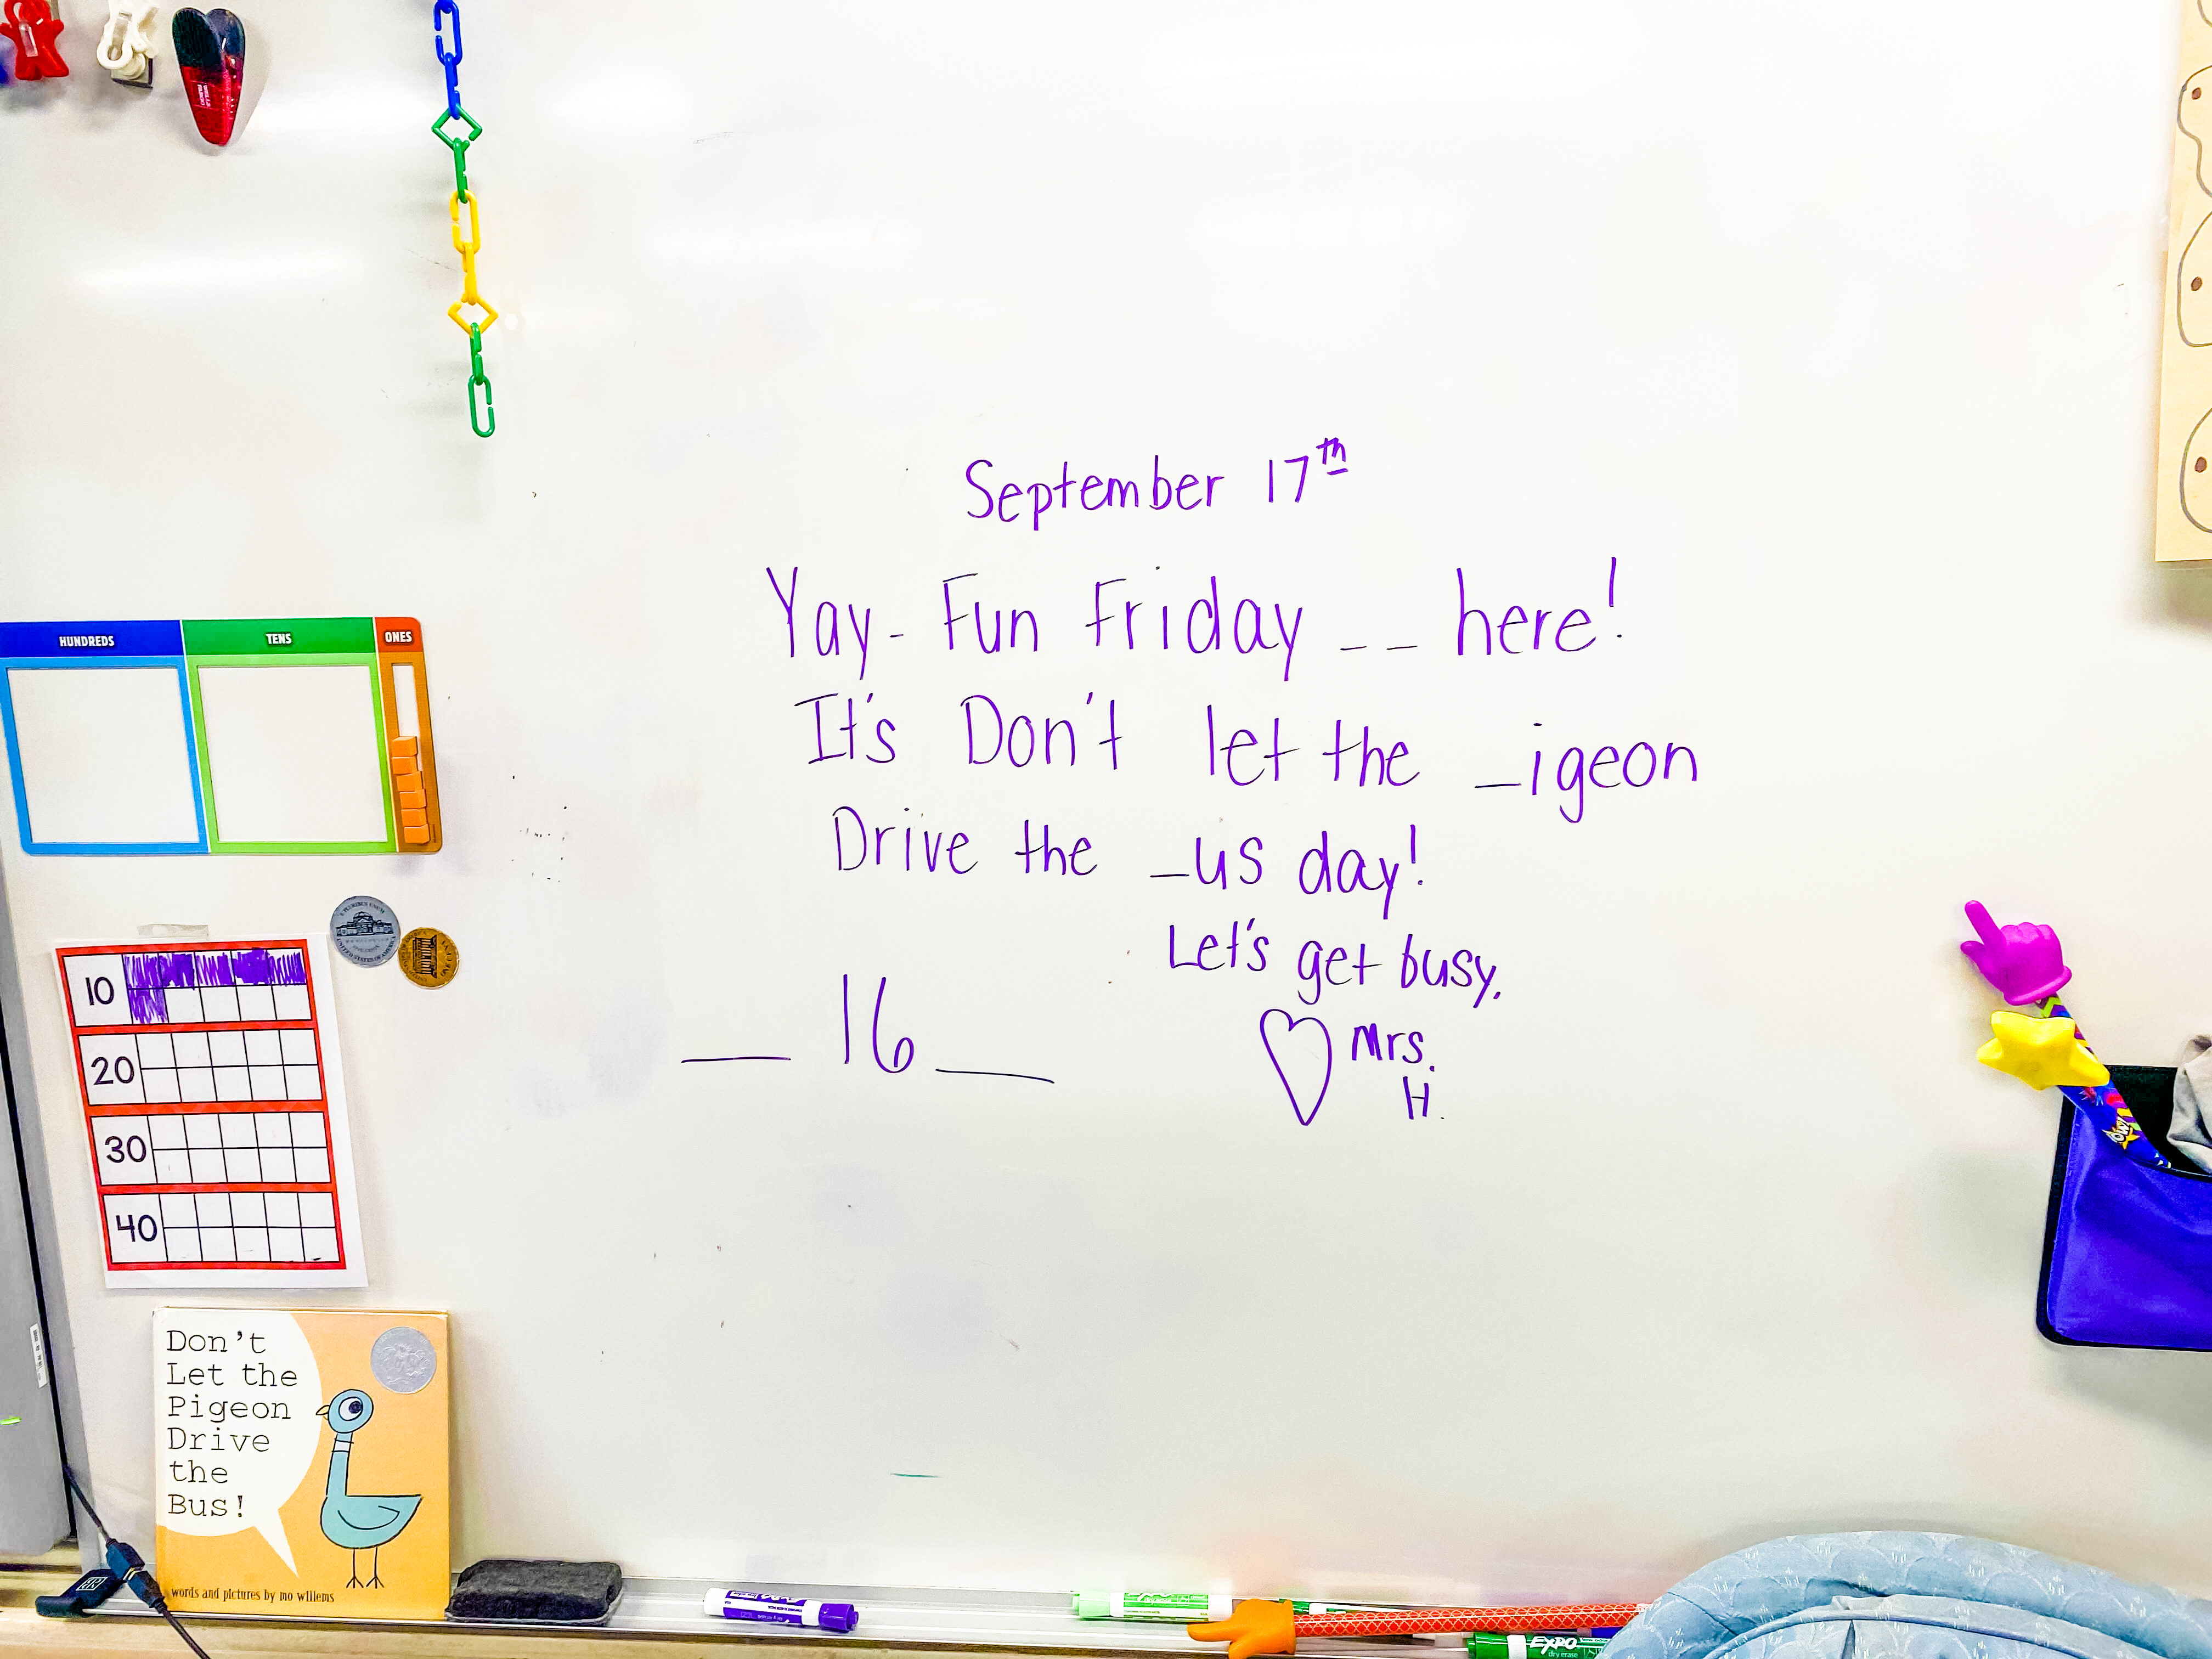 September 17th
Yay- Fun Friday _ _ here!
It's Don't let the _igeon
Drive the _us day!
Let's get busy.
_ 16 _
Mrs.
H.
HUNDREDS TENS ONES
10
20
30
40
Don't
Let the
Pigeon
Drive
the
Bus!
words and pictures by mo willems
EXPO
dry erase